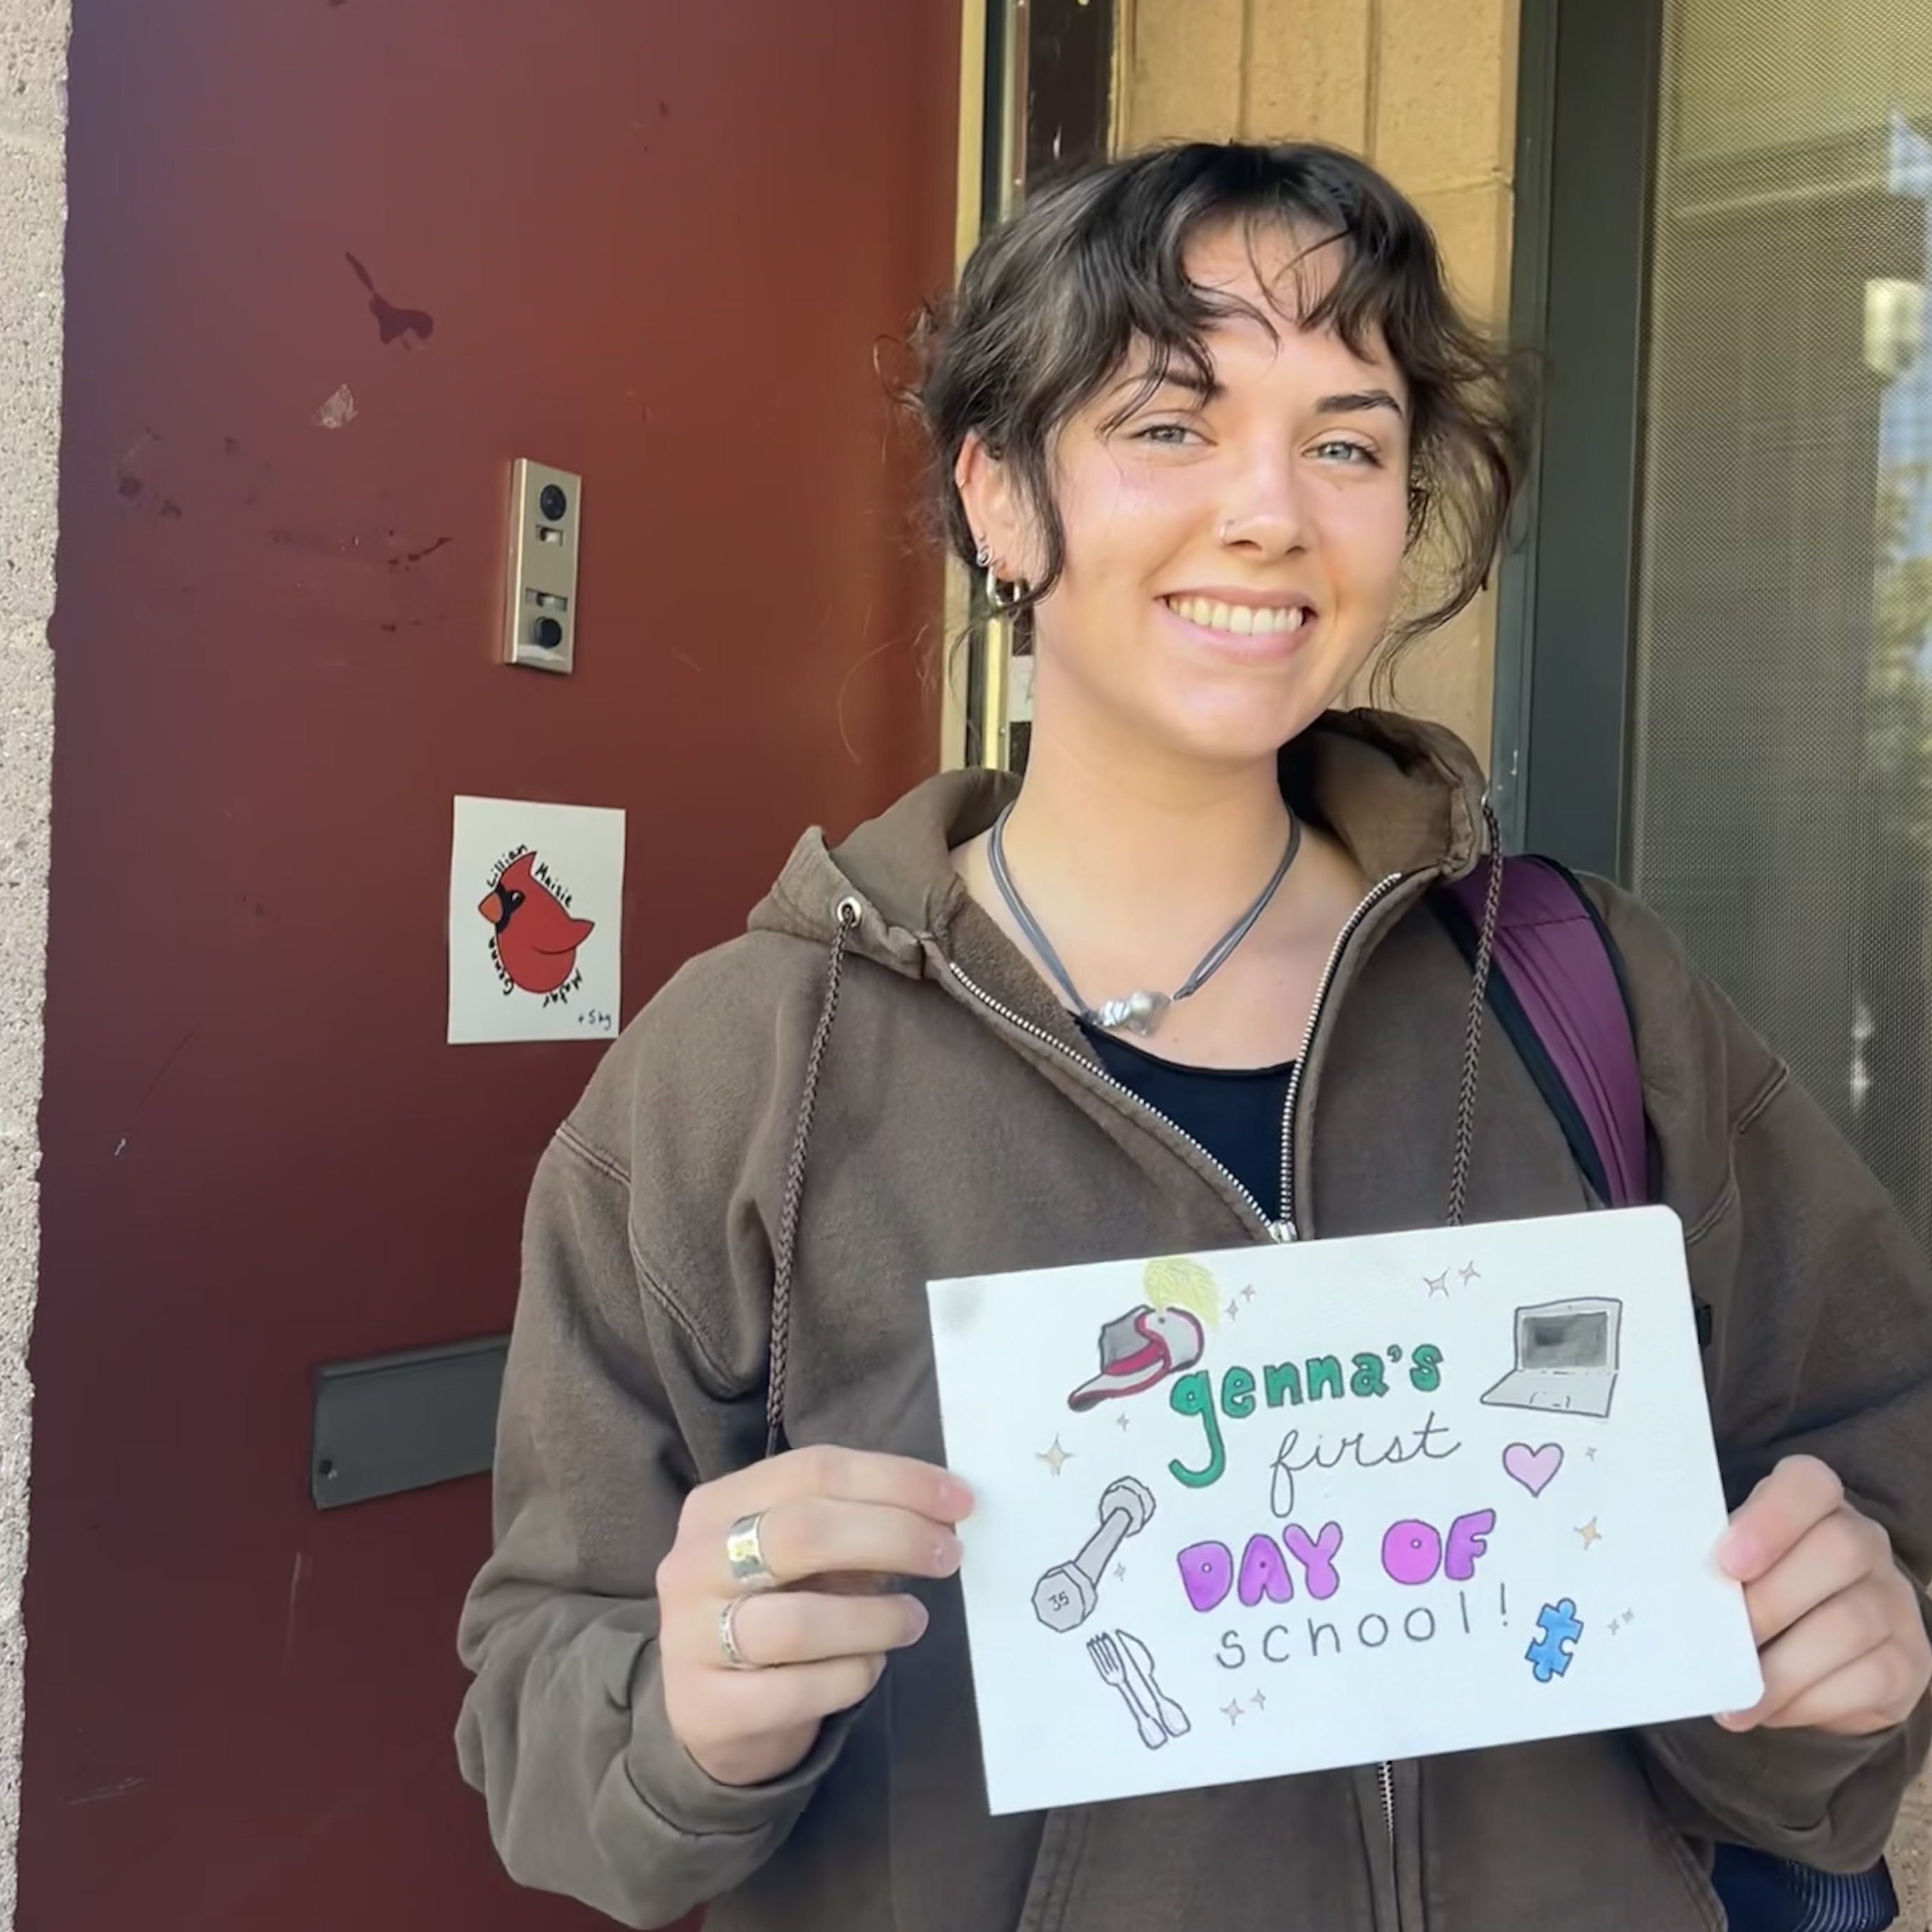 Lillian
Maisie
Genna
+ Sky
genna's
first
DAY OF
school!
35